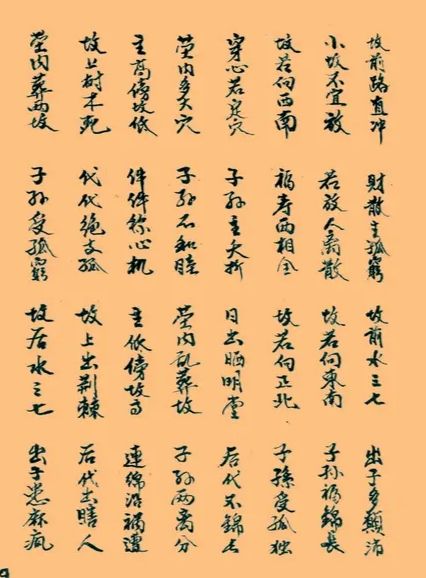 坟前路直冲 財散主孤窮 坟前水三七 出子多顛沛
小坟不宜放 若放人离散 坟若向東南 子孙福錦長
坟若向西南 福寿两相全 坟若向正北 子孫受孤独
穿心若定穴 子孙主夭折 日出晒明堂 后代不錦长
茔内多大穴 子孙不和睦 茔内乱葬坟 子孙两离分
主高傍坟低 件件称心机 主低傍坟高 連綿沿禍遭
坟上树木死 代代绝支孤 坟上出荆棘 后代出瞎人
茔内葬两坟 子孙受孤窮 坟后水三七 出子患麻疯